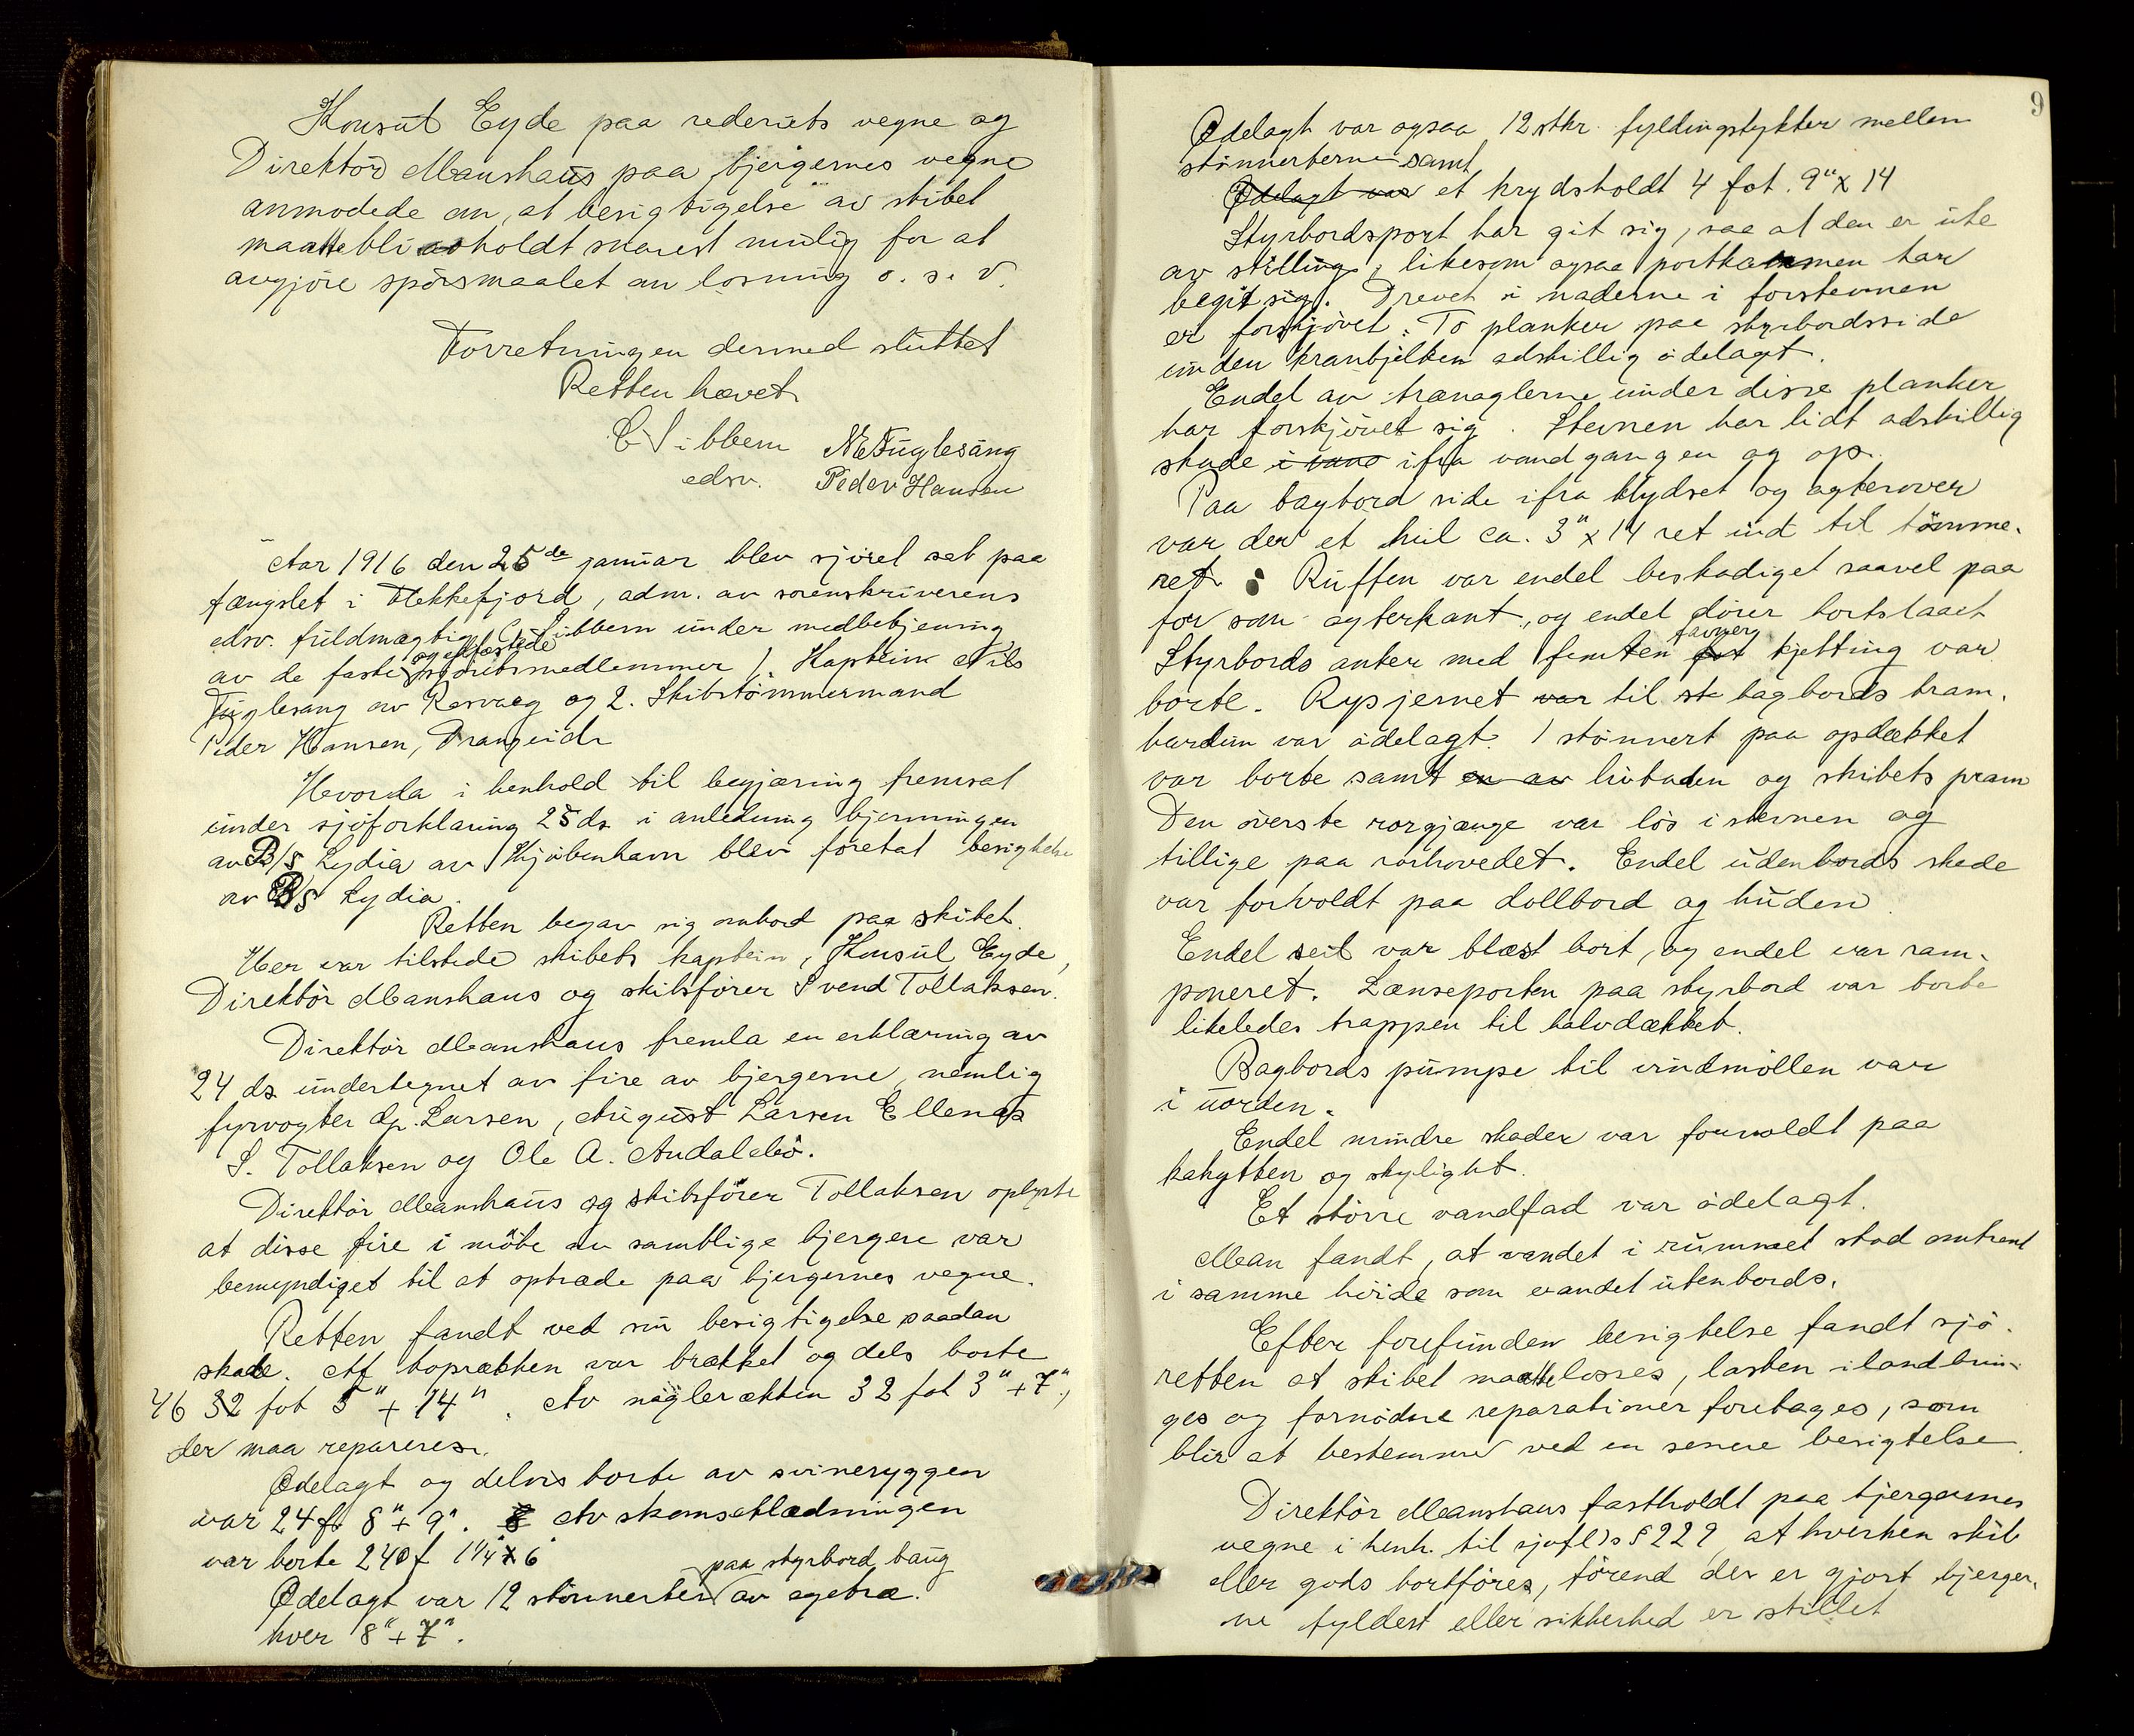 Konsul Eyde paa rederiets vegne og
Direktör Manshaus paa bjergernes vegne
anmodede om, at besigtigelse av skibet
maatte bli avholdt snarest mulig for at
avgjöre spörsmaalet om losning o. s. v.
Forretningen dermed sluttet
Retten hævet
C Sibbern N E Fuglesang
edsv. Peder Hansen
Aar 1916 den 25de januar blev sjöret sat paa
fængslet i Flekkefjord, adm. av sorenskriverens
edsv. fuldmægtig C. Sibbern under medbetjening
av de faste og edfæstede sjöretsmedlemmer 1. Kaptein Nils
Fuglesang av Rasvaag og 2. Skibstömmermand
Peder Hansen, Drangeid
Hvorda i henhold til begjæring fremsat
under sjöforklaring 25 ds i anledning bjerningen
av B/S Lydia av Kjöbenhavn blev foretat besigtelse
av B/S Lydia.
Retten begav sig ombord paa skibet.
Her var tilstede skibets kaptein, Konsul Eyde,
Direktör Manshaus og skibsförer Svend Tollaksen.
Direktör Manshaus fremla en erklæring av
24 ds undertegnet av fire av bjergerne, nemlig
fyrvogter Larsen, August Larsen Ellenes
S. Tollaksen og Ole A. Andabelö.
Direktör Manshaus og skibsförer Tollaksen oplyste
at disse fire i möte av samtlige bjergere var
bemyndiget til at optræde paa bjergernes vegne.
Retten fandt ved sin besigtigelse saadan
skade. Af toprækken var brækket og dels borte
46 32 fot 5" + 14". Av naglerækken 32 fot 3" + 7",
der maa repareres.
Ödelagt og delvis borte av svineryggen
var 24 ft 8" + 9". 8 Av skamseklædningen
var borte 240 f 1 1/4" x 6"
Ödelagt var 12 stönnerter paa styrbord baug av egetræ.
hver 8" + 7".
9
Ödelagt var ogsaa 12 stkr. fyldingstykker mellem
stönnerterne samt
Ödelagt var et krydsholdt 4 fot. 9" x 14
Styrbordsport har git sig, saa at den er ute
av stilling, likesom ogsaa portkarmen har
begit sig. Drevet i naderne i forstevnen
er forskjövet. To planker paa styrbordsside
unden kranbjelken adskillig ödelagt.
Endel av trænaglerne under disse planker
har forskjövet sig. Stevnen har lidt adskillig
skade i vand ifra vandgangen og op.
Paa bagbord side ifra klydset og agterover
var der et hul ca. 3" x 14 ret ind til tömme-
ret. Ruffen var endel beskadiget saavel paa
for som agterkant, og endel dörer bortslaaet
Styrbords anker med femten fot favner kjetting var
borte. Rysjernet var til st bagbords bram-
bardun var ödelagt. 1 stönnert paa opdækket
var borte samt en av livbaaden og skibets pram
Den överste rorgjænge var lös i stevnen og
tillige paa rorhovedet. Endel udenbords skade
var forvoldt paa dollbord og huden.
Endel seil var blæst bort, og endel var ram-
poneret. Lænseporten paa styrbord var borte
likeledes trappen til halvdækket.
Bagbords pumpe til vindmöllen var
i uorden.
Endel mindre skader var forvoldt paa
kahytten og skylight.
Et större vandfad var ödelagt.
Man fandt, at vandet i rummet stod omtrent
i samme höide som vandet utenbords.
Efter forefunden besigtelse fandt sjö-
retten at skibet maatte losses, lasten ilandbrin-
ges og fornödne reparationer foretages, som
blir at bestemme ved en senere besigtelse.
Direktör Manshaus fastholdt paa bjergernes
vegne i henh. til sjöfl's § 229, at hverken skib
eller gods bortföres, förend der er gjort bjerger-
ne fyldest eller sikkerhed er stillet